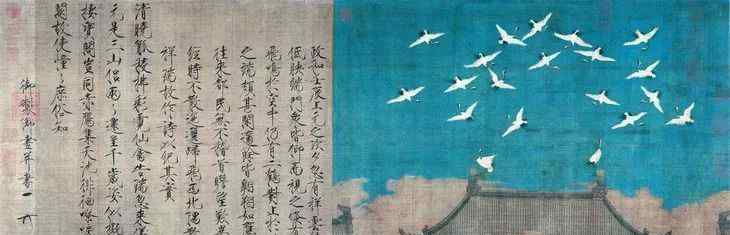 政和壬辰上元之次夕忽有祥雲
低映端門衆皆仰而視之倏有
飛鳴於空中仍有二鶴對止於
之端頗甚閑適餘皆翱翔如應
往來都民無不稽首瞻望歎異
經時不散迤邐歸飛西北隅散
祥瑞故作詩以紀其實
清曉觚稜拂彩霓仙禽告瑞忽來儀
元是三山侶兩兩還呈千歲姿似擬
棲寶閣豈同赤鴈集天池徘徊嘹唳
闕故使憧憧庶俗知
御製御畫并書